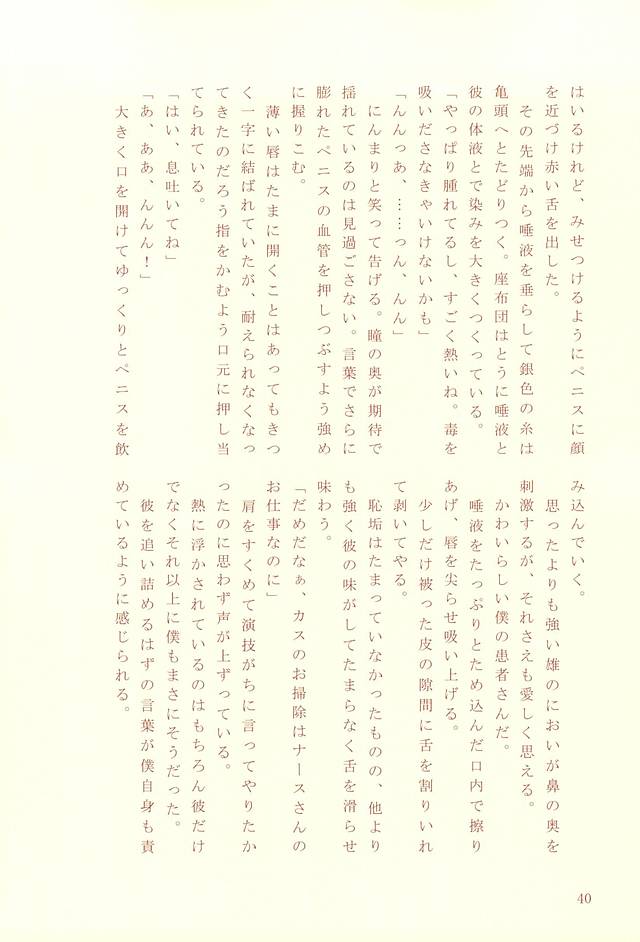 はいるけれど、みせつけるようにペニスに顔
を近づけ赤い舌を出した。
その先端から唾液を垂らして銀色の糸は
亀頭へとたどりつく。座布団はとうに唾液と
彼の体液とで染みを大きくつくっている。
「やっぱり腫れてるし、すごく熱いね。毒を
吸いださなきゃいけないかも」
「んんっあ、……っん、んん」
にんまりと笑って告げる。瞳の奥が期待で
揺れているのは見過ごさない。言葉でさらに
膨れたペニスの血管を押しつぶすよう強め
に握りこむ。
薄い唇はたまに開くことはあってもきつ
く一字に結ばれていたが、耐えられなくなっ
てきたのだろう指をかむよう口元に押し当
てられている。
「はい、息吐いてね」
「あ、ああ、んんん！」
大きく口を開けてゆっくりとペニスを飲
み込んでいく。
思ったよりも強い雄のにおいが鼻の奥を
刺激するが、それさえも愛しく思える。
かわいらしい僕の患者さんだ。
唾液をたっぷりとため込んだ口内で擦り
あげ、唇を尖らせ吸い上げる。
少しだけ被った皮の隙間に舌を割りいれ
て剥いてやる。
恥垢はたまっていなかったものの、他より
も強く彼の味がしてたまらなく舌を滑らせ
味わう。
「だめだなぁ、カスのお掃除はナースさんの
お仕事なのに」
肩をすくめて演技がちに言ってやりたか
ったのに思わず声が上ずっている。
熱に浮かされているのはもちろん彼だけ
でなくそれ以上に僕もまさにそうだった。
彼を追い詰めるはずの言葉が僕自身も責
めているように感じられる。
40